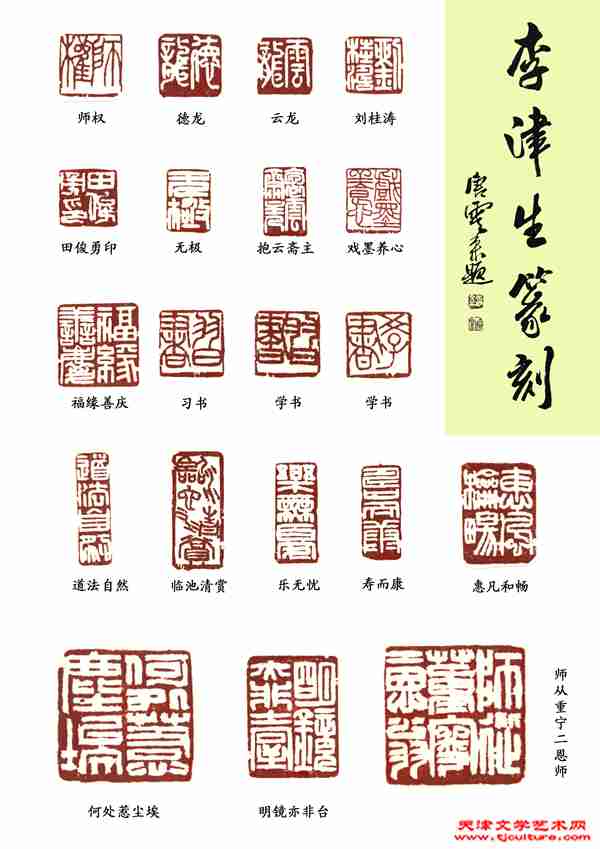 李津生篆刻
唐云来题
师权
德龙
云龙
刘桂涛
田俊勇印
无极
抱云斋主
戏墨养心
福缘善庆
习书
学书
学书
道法自然
临池清赏
乐无忧
寿而康
惠风和畅
何处惹尘埃
明镜亦非台
师从重宁二恩师
天津文学艺术网
www.tjculture.com